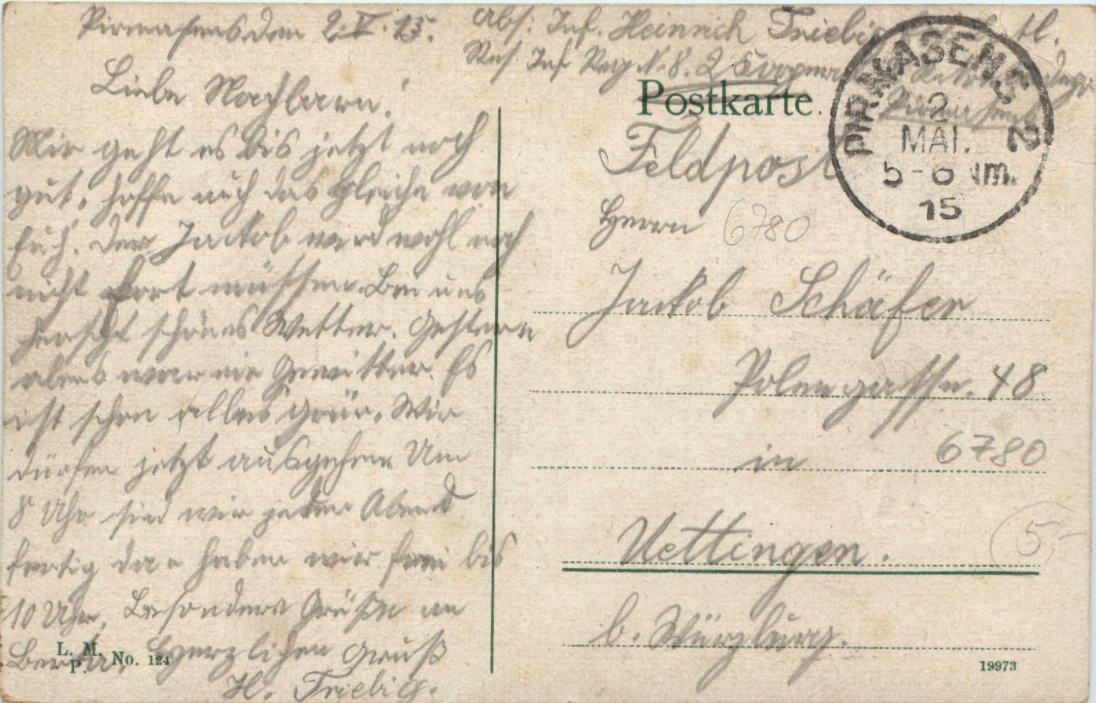 Pirmasens den 2. V. 15.
Abs: Inf. Heinrich Triebig
Res. Inf. Reg. N. 8. 2
Liebe Nachbarn!
Mir geht es bis jetzt noch
gut, hoffe auch das Gleiche von
Euch. Der Jackob wird wohl noch
nicht fort müssen. Bei uns
herscht schönes Wetter. Gestern
abend war ein Gewitter. Es
ist schon alles Grün. Wir
dürfen jetzt ausgehen. Um
8 Uhr sind wir jeden Abend
fertig dan haben wir frei bis
10 Uhr. Besondere Grüße an
Herzlichen Gruß
H. Triebig.
Postkarte.
Feldpost
PIRMASENS 2
2
MAI.
5-6 Nm.
15
Herrn
6780
Jackob Schäfer
Polengasse. 48
in
6780
Uettingen.
5,-
b. Würzburg.
L. M.
P.
No. 124
19973